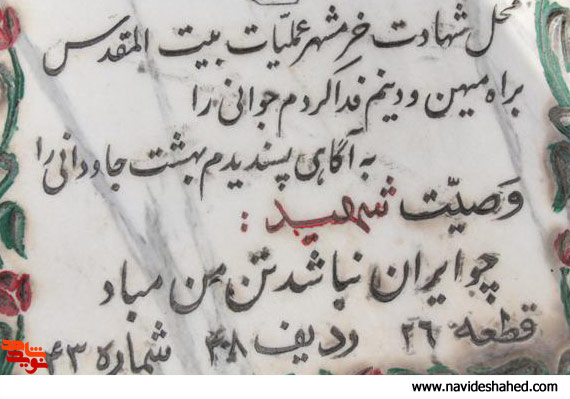 محل شهادت خرمشهر عملیّات بیت المقدس
براه میهن و دینم فدا کردم جوانی را
به آگاهی پسندیدم بهشت جاودانی را
وصیّت شهید :
چو ایران نباشد تن من مباد
قطعه ۲۶ ردیف ۴۸ شماره ۴۳
نوید شاهد
www.navideshahed.com